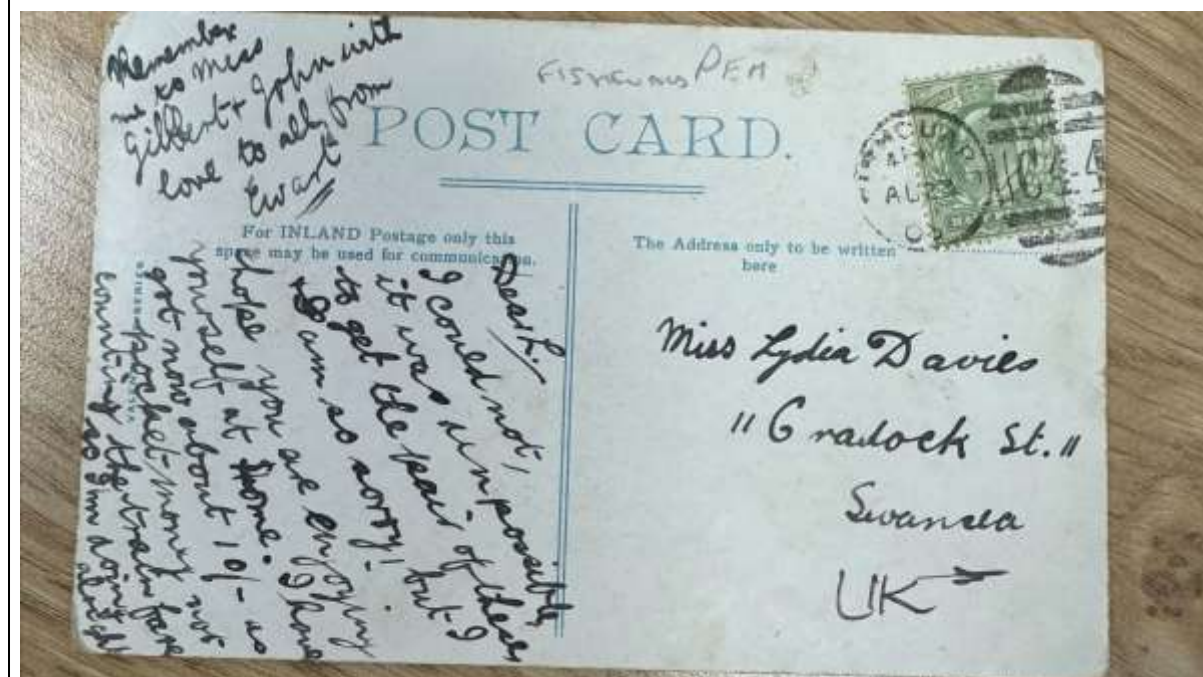 Remember
me to Miss
Gilbert & John with
love to all, from
Ewart
FISHGUARD PEM
POST CARD.
For INLAND Postage only this
space may be used for communication.
The Address only to be written
here
MOUTH
AU 23
Dear L.
I could not,
it was unpossible,
to get the pair of these
I am so sorry! but I
hope you are enjoying
yourself at home. I have
got now about 10/- as
pocket-money not
counting the train fare
so I'm doing
alright
Miss Lydia Davies
"Cradock St."
Swansea
UK